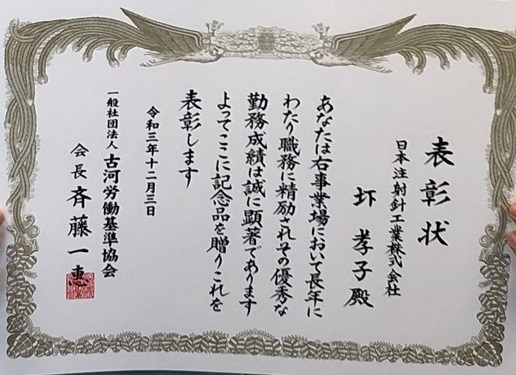 表彰状
日本注射針工業株式会社
圷 孝子 殿
あなたは右事業場において長年に
わたり職務に精励されその優秀な
勤務成績は誠に顕著であります
よってここに記念品を贈りこれを
表彰します
令和三年十二月三日
一般社団法人 古河労働基準協会
会長 斉藤一惠